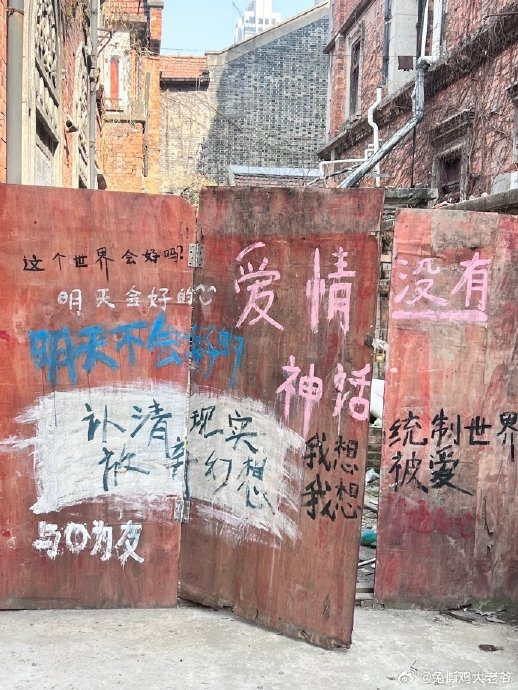 这个世界会好吗?
明天会好的
明天不会好的
认清现实
放弃幻想
与0为友
爱情
神话
我想
我想
没有
统制世界
被爱
@兔撕鸡大老爷